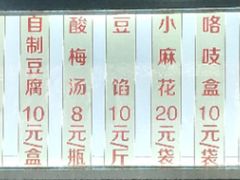 咯吱盒10元/袋
小麻花20元/袋
豆馅10元/斤
酸梅汤8元/瓶
自制豆腐10元/盒